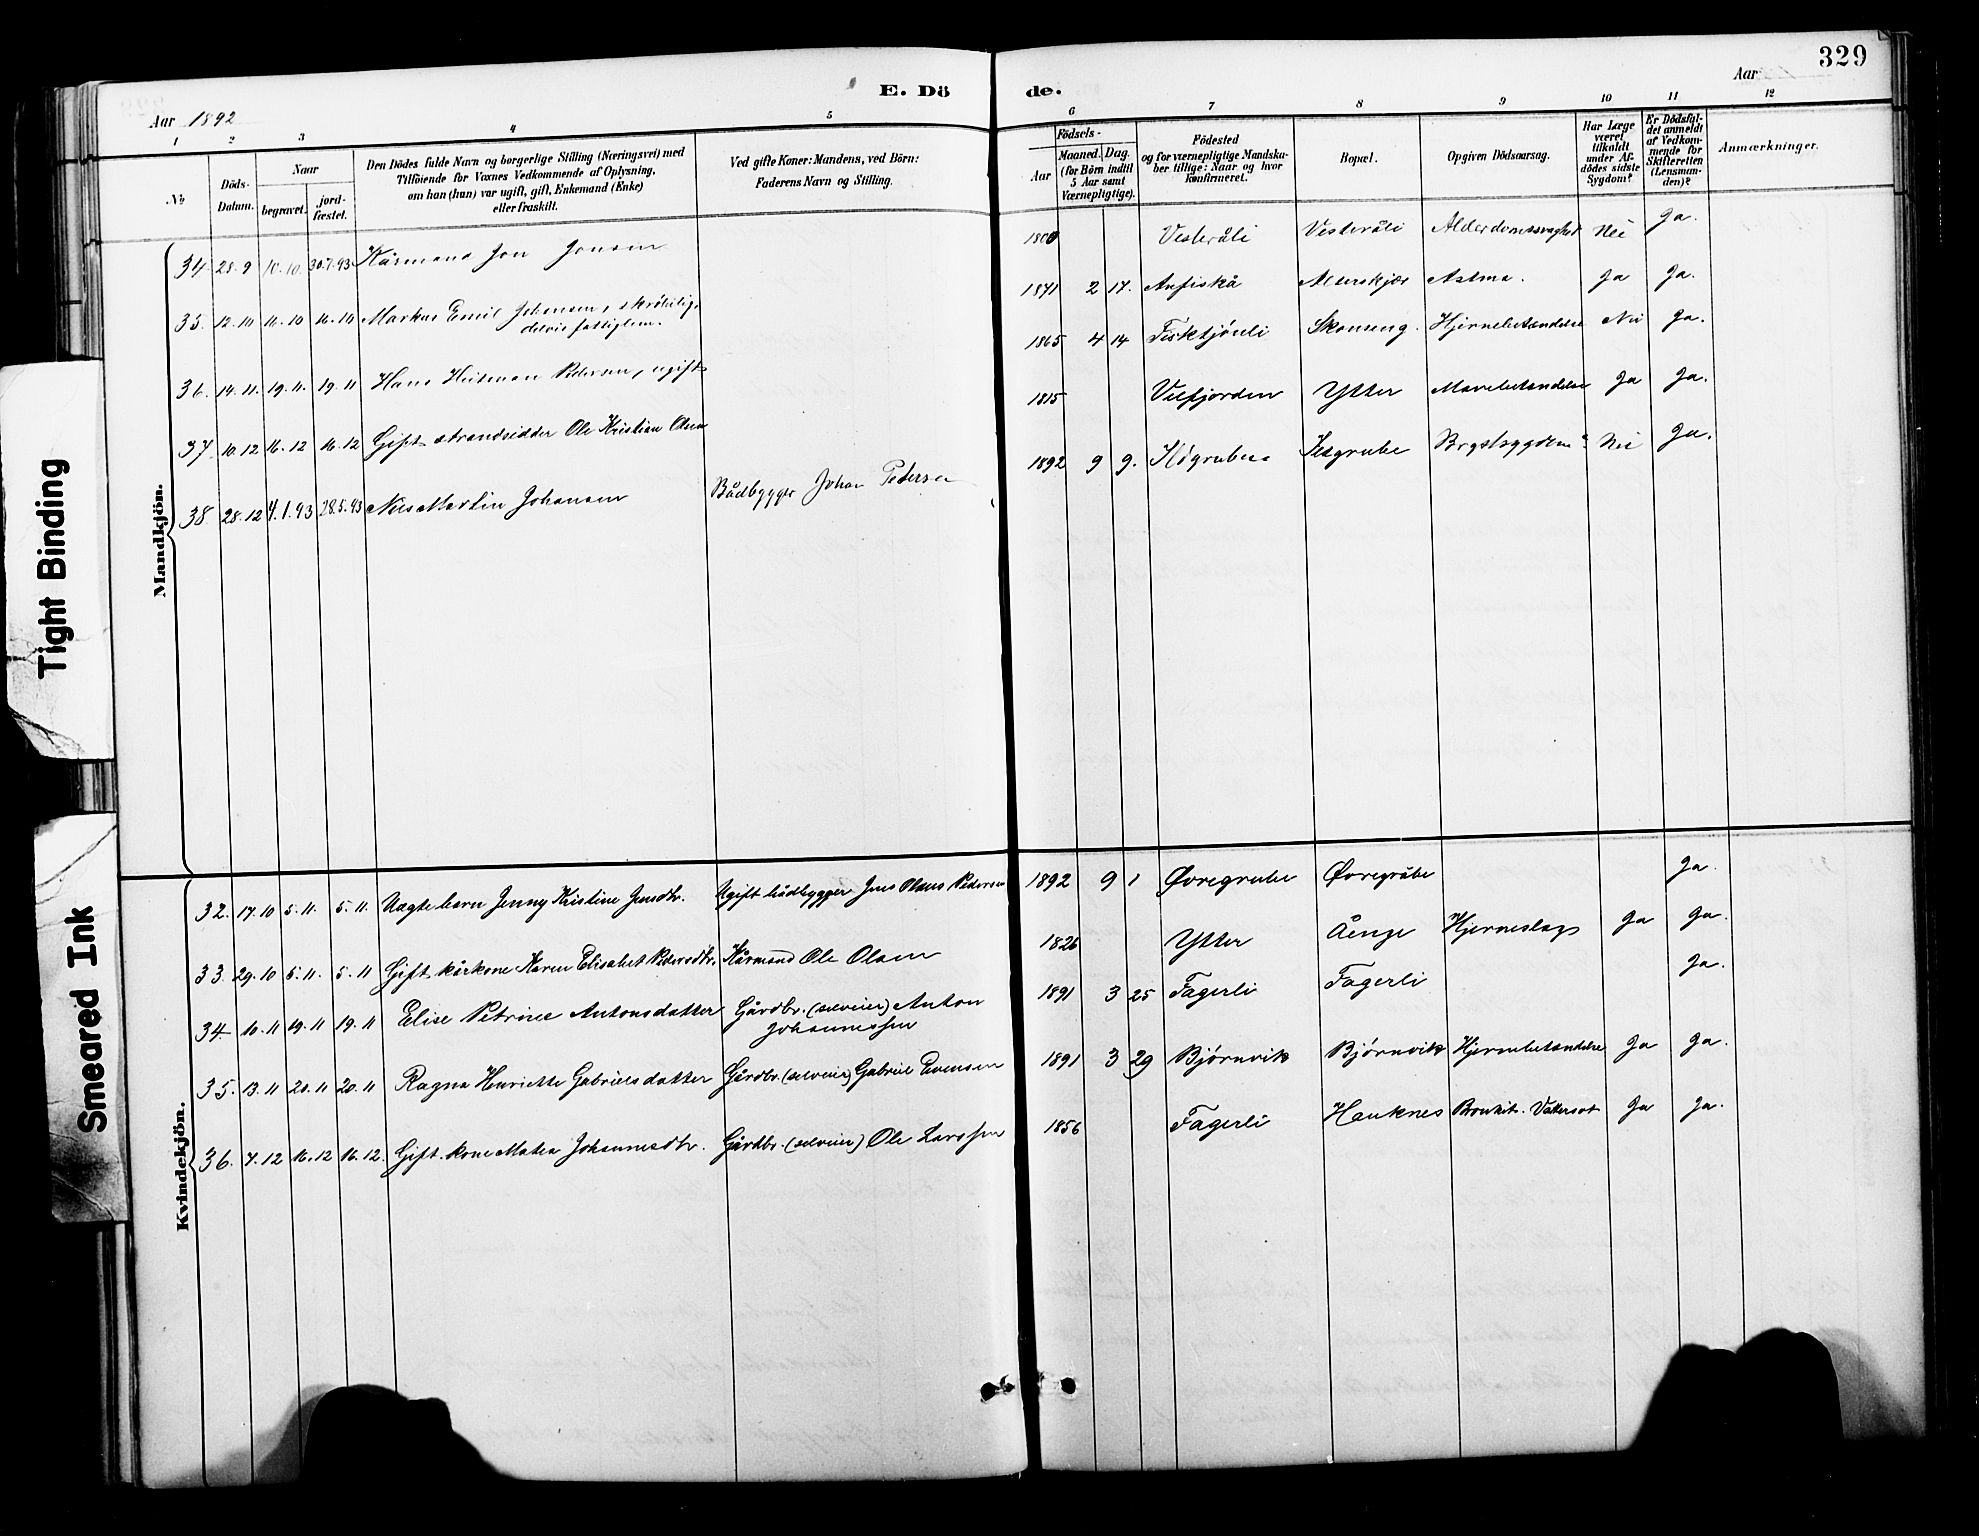 329
E. Dö de.
Aar 1892
Aar
1 2 3 4 5 6 7 8 9 10 11 12
No
Döds-
Datum.
Naar
begravet.
jord-
fæstet.
Den Dödes fulde Navn og borgerlige Stilling (Næringsvei) med
Tilföiende for Voxnes Vedkommende af Oplysning,
om han (hun) var ugift, gift, Enkemand (Enke)
eller fraskilt.
Ved gifte Koner: Mandens, ved Börn:
Faderens Navn og Stilling.
Födsels-
Aar
Maaned. Dag.
(for Börn indtil
5 Aar samt
Værnepligtige).
Födested
og for værnepligtige Mandska-
ber tillige: Naar og hvor
konfirmeret.
Bopæl.
Opgiven Dödsaarsag.
Har Læge
været
tilkaldt
under Af-
dödes sidste
Sygdom?
Er Dödsfal-
det anmeldt
af Vedkom-
mende for
Skifteretten
(Lensman-
den)?
Anmærkninger.
Mandkjön.
34. 28.9 10.10. 30.7.93 Kårmand Jon Jonsen 1800 Vesteråli Vesteråli Alderdomssvaghed Nei Ja.
35. 12.10 16.10 16.10 Markus Emil Johansen, skrøbelig,
delvis fattiglem. 1871 2 17. Anfiskå Alterskjær Astma. Ja Ja.
36. 14.11. 19.11. 19.11 Hans Hutman Pedersen, ugift 1865 4 14 Fisktjønli Skonseng. Hjernebetændelse Nei Ja.
37. 10.12 16.12 16.12 Gift strandsidder Ole Kristian Olsen 1815 Velfjorden Ytter Mavebetændelse Ja Ja.
38 28.12 4.1.93 28.5.93 Nils Martin Johansen Bådbygger Johan Petersen 1892 9 9. Ildgruben Ildgrube Brystsygdom Nei Ja.
Kvindekjön.
32. 17.10 5.11. 5.11. Uægte barn Jenny Kristine Jensdtr. Ugift bådbygger Jens Olaus Pedersen 1892 9 1 Øvregrube Øvregrube Ja.
33. 29.10 5.11. 5.11 Gift kårkone Karen Elisabet Petersdtr. Kårmand Ole Olsen 1826 Ytter Åenge Hjerneslag Ja Ja.
34. 10.11 19.11 19.11 Elise Petrine Antonsdatter Gårdbr. (selveier) Anton
Johannessen 1891 3 25 Fagerli Fagerli Ja.
35. 13.11 20.11 20.11 Ragna Henriette Gabrielsdatter Gårdbr. (selveier) Gabriel Evensen 1891 3 29 Bjørnvik Bjørnvik Hjernebetændelse Ja Ja.
36. 7.12 16.12 16.12. Gift kone Matea Johannesdtr. Gårdbr. (selveier) Ole Larssen 1856 Fagerli Hauknes Bronkit. Vattersot Ja Ja.
Tight Binding
Smeared Ink